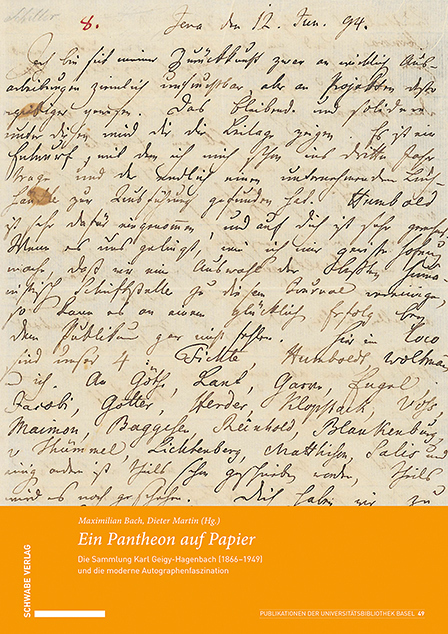 Schiller
8. Jena den 12. Jun. 94.
Ich bin seit meiner Zurückkunft zwar an wirklich Aus-
arbeitungen ziemlich unfruchtbar, aber an Projekten desto
gewesen. Das bleibende und solideste
unter diesen wird dir die Beilage zeigen. Es ist ein
Entwurf, mit dem ich mich schon ins dritte Jahr
trage und der endlich einen unternehmenden Buch-
zur Ausführung gefunden hat. Humbold
ist sehr dafür eingenommen, und auf dich ist sehr gerechnet.
Wenn es uns gelingt, wie ich mir gewisse Hofnung
mache, daß wir eine Auswahl der Besten
Schriftsteller zu diesem Journal vereinigen
so kann es an einem glücklich Erfolg bey
dem Publikum gar nicht fehlen. Hier in Loco
sind unser 4 Fichte, Humboldt Woltman
u ich. An Göthe, Kant, Garve, Engel
Jacobi, Gotter, Herder, Klopstock Voß
Maimon, Baggesen, Reinhold, Blankenburg
v Thümmel, Lichtenberg, Matthison Salis und
einig andre ist theils schon geschrieben worden, theils
wird es noch geschehen. Dich haben wir zu
Maximilian Bach, Dieter Martin (Hg.)
Ein Pantheon auf Papier
Die Sammlung Karl Geigy-Hagenbach (1866–1949)
und die moderne Autographenfaszination
SCHWABE VERLAG
PUBLIKATIONEN DER UNIVERSITÄTSBIBLIOTHEK BASEL 49